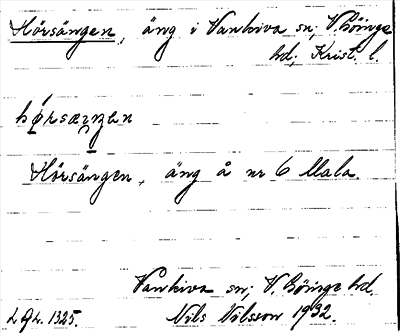 Hörsängen, äng i Vankiva sn; V. Göinge
hd; Krist. l.
hǿrsæŋən
Hörsängen, äng å nr 6 Mala.
Vankiva sn; V. Göinge hd.
Nils Nilsson 1932.
L Gr. 1325.